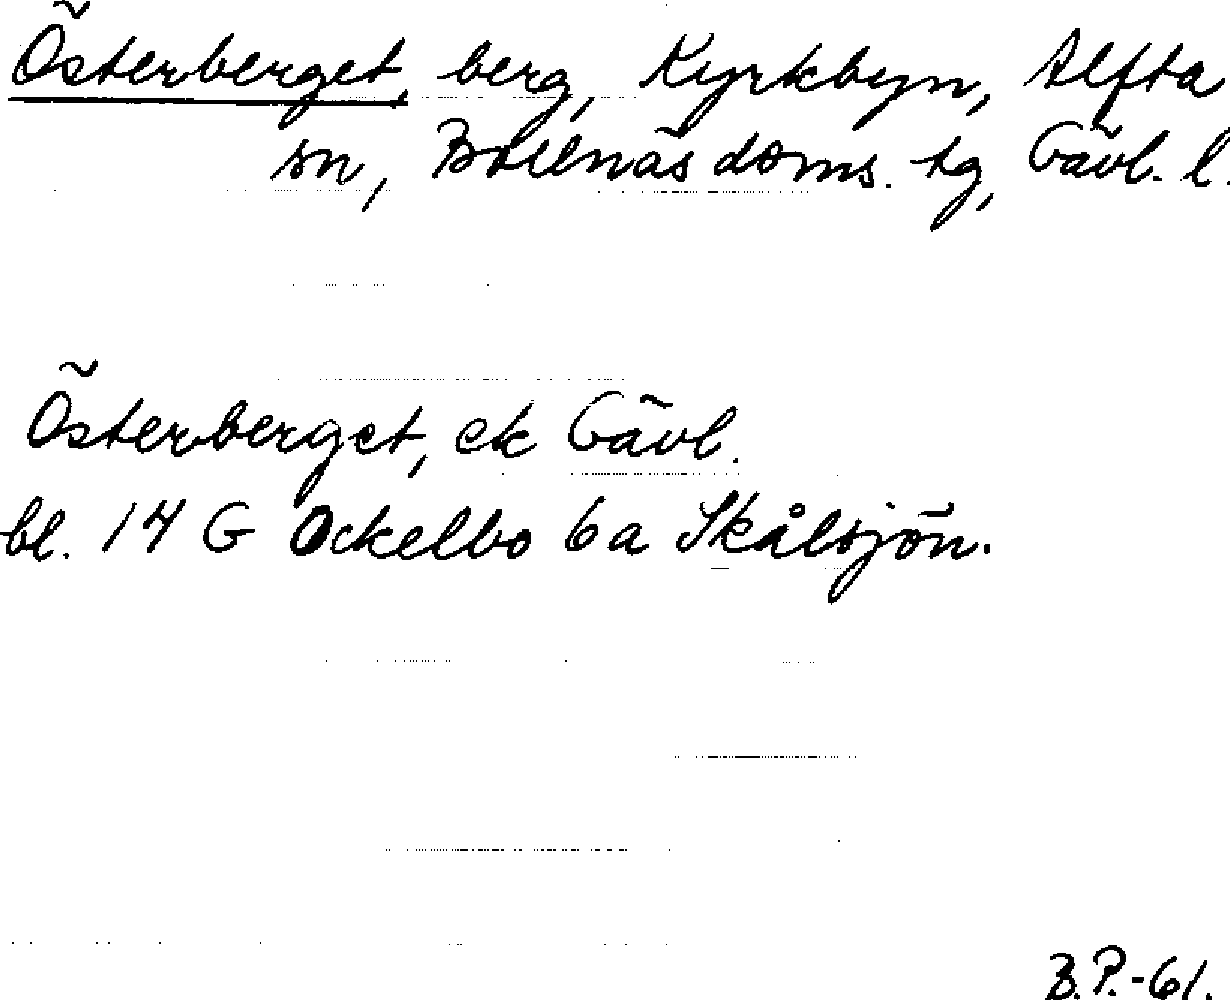 Österberget, berg, Kyrkbyn, Alfta
sn, Bollnäs doms. tg, Gävl. l.
Österberget, ek Gävl.
bl. 14 G Ockelbo 6a Skålsjön.
B.P.-61.